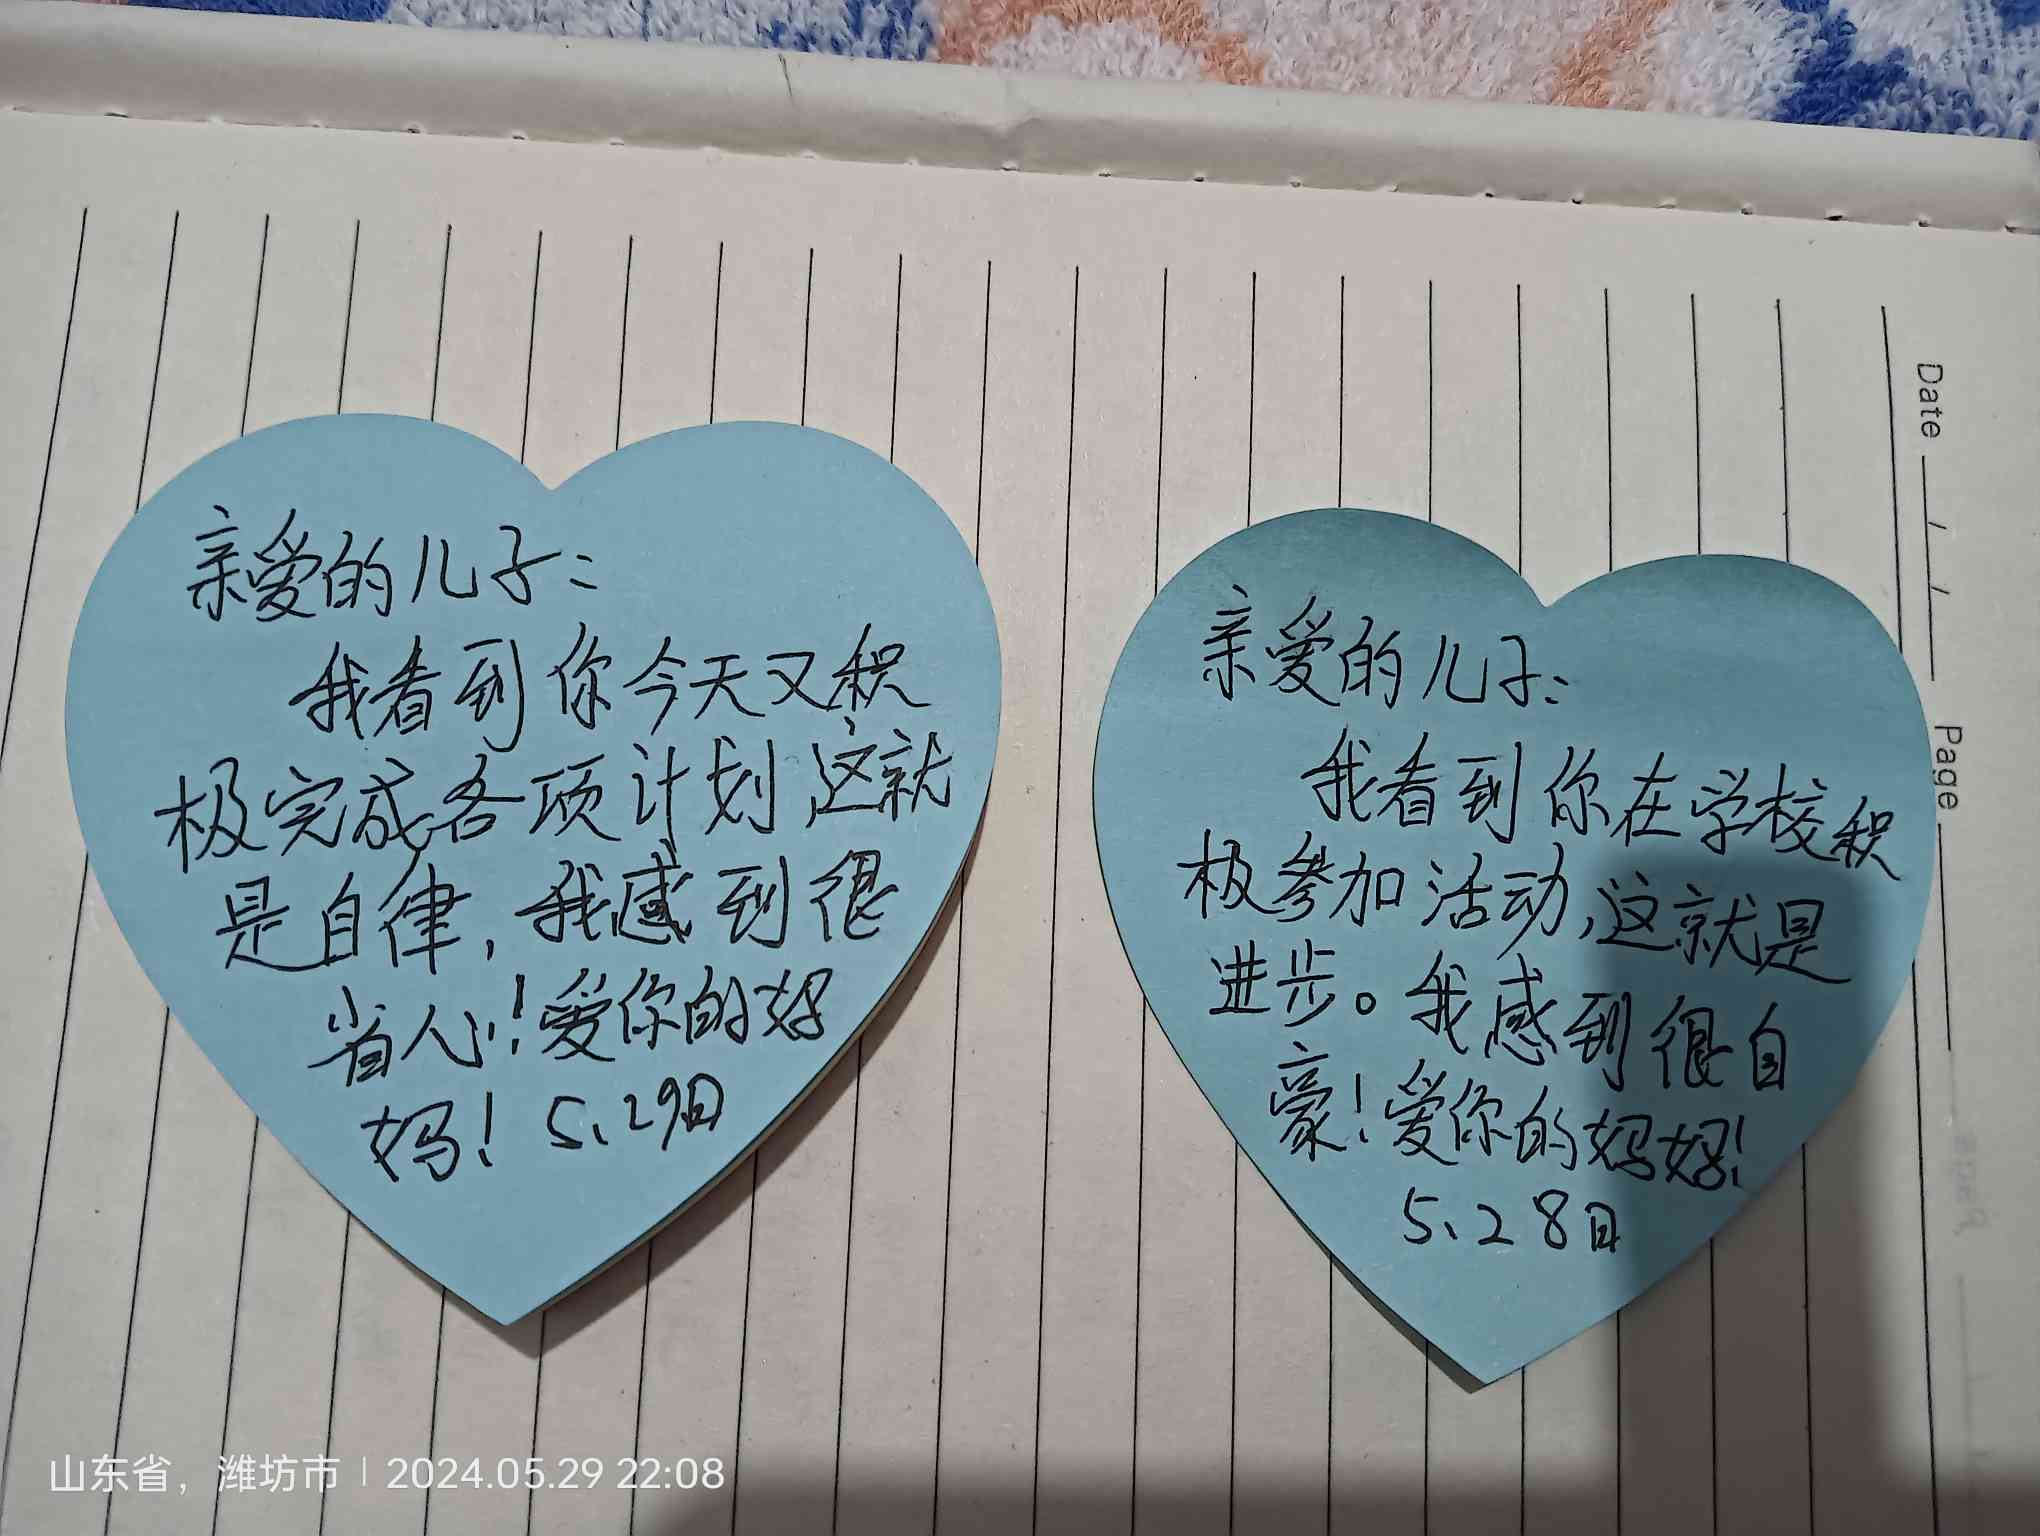 亲爱的儿子:
我看到你今天又积
极完成各项计划这就
是自律,我感到很
省人心!爱你的妈
妈! 5、29日
亲爱的儿子:
我看到你在学校积
极参加活动,这就是
进步。我感到很自
豪!爱你的妈妈!
5、28日
Date / /
Page
山东省,潍坊市 | 2024.05.29 22:08